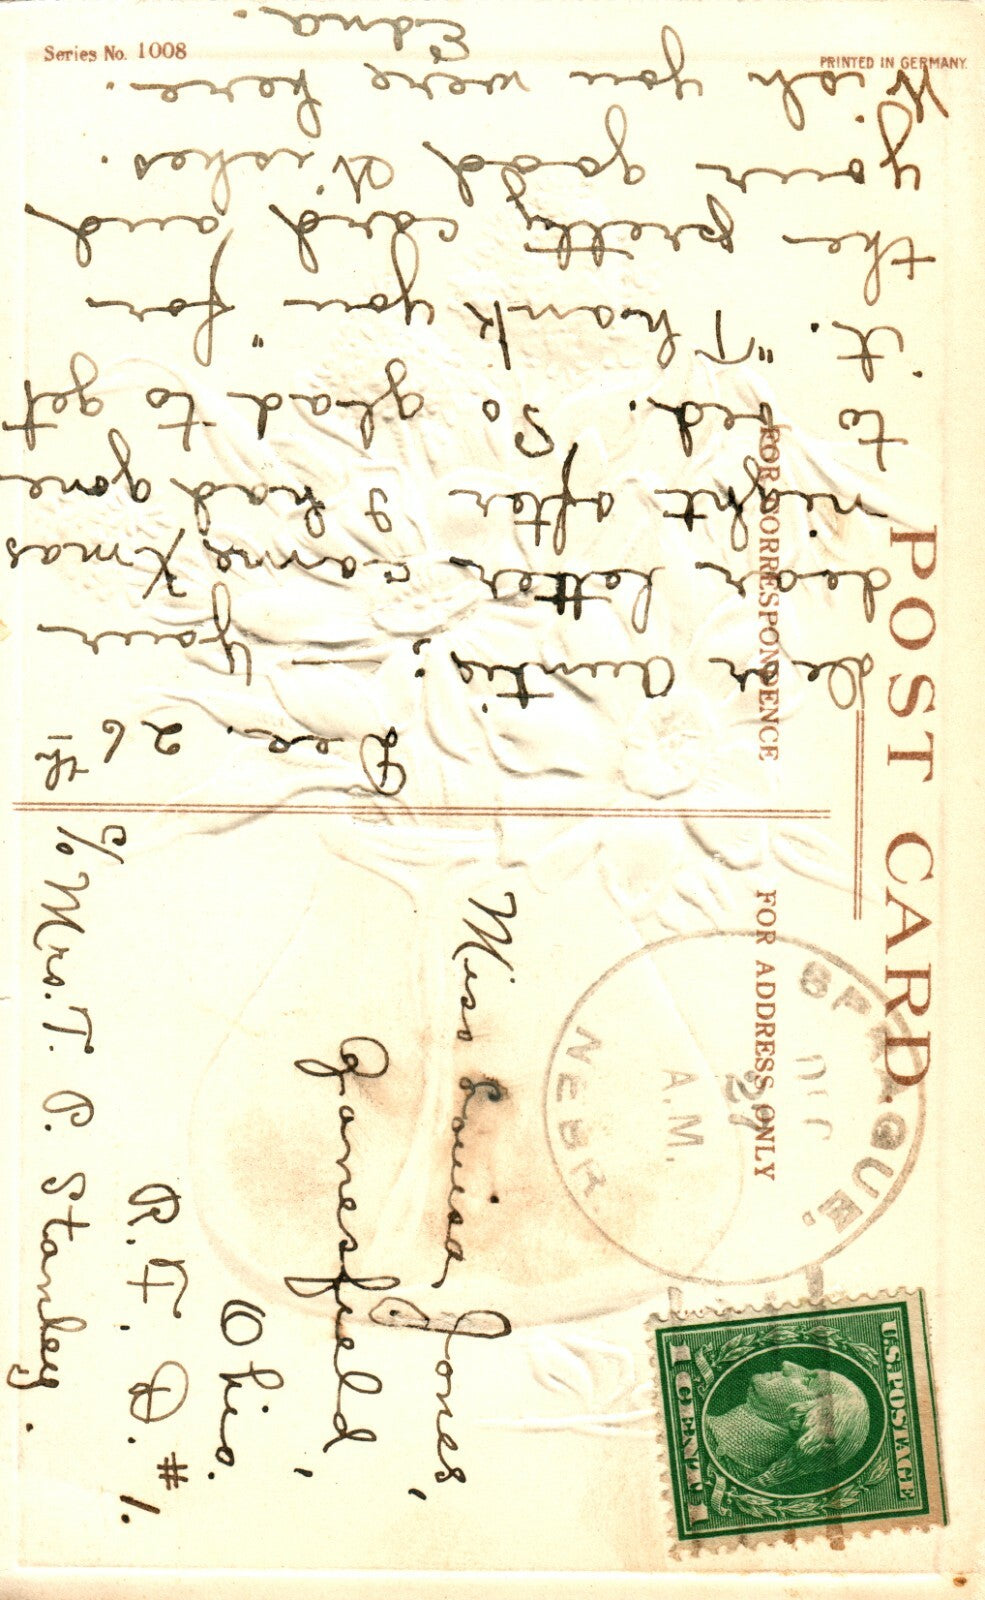 Series No. 1008
PRINTED IN GERMANY.
POST CARD.
FOR CORRESPONDENCE
FOR ADDRESS ONLY
Dec. 26th
dear auntie; — Your
dear letter came Xmas
night after I had gone
to bed. So glad to get
it. "Thank you" for
the pretty card and
your good Wishes.
Wish you were here.
Edna.
SPRAGUE,
DEC
27
A.M.
NEBR
U.S. POSTAGE
1 CENT 1
Miss Louisa Jones,
Jonesfield,
Ohio.
R. F. D. #1.
c/o Mrs. T. P. Stanley.